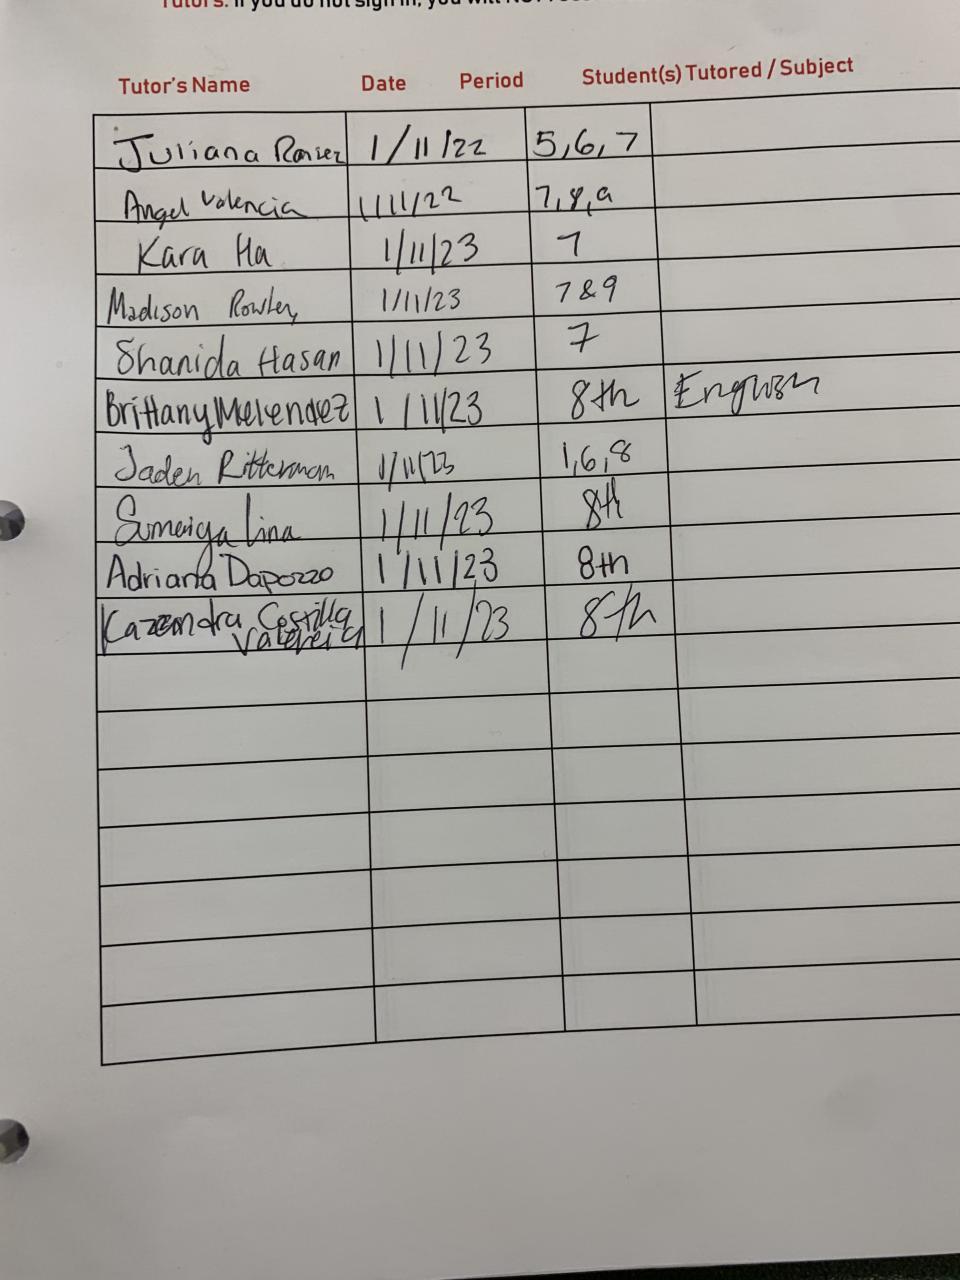 Tutors: If you do not sign in, you will NOT
Tutor's Name Date Period Student(s) Tutored / Subject
Juliana 1/11/22 5,6,7
Angel Valencia 1/11/22 7,8,9
Kara Ha 1/11/23 7
Madison Rowley 1/11/23 7 & 9
Shanida Hasan 1/11/23 7
Brittany Melendez 1/11/23 8th English
Jaden Ritterman 1/11/23 1,6,8
Sumaiya Lina 1/11/23 8th
Adriana Dapozzo 1/11/23 8th
Kazandra Costilla 1/11/23 8th
Valencia